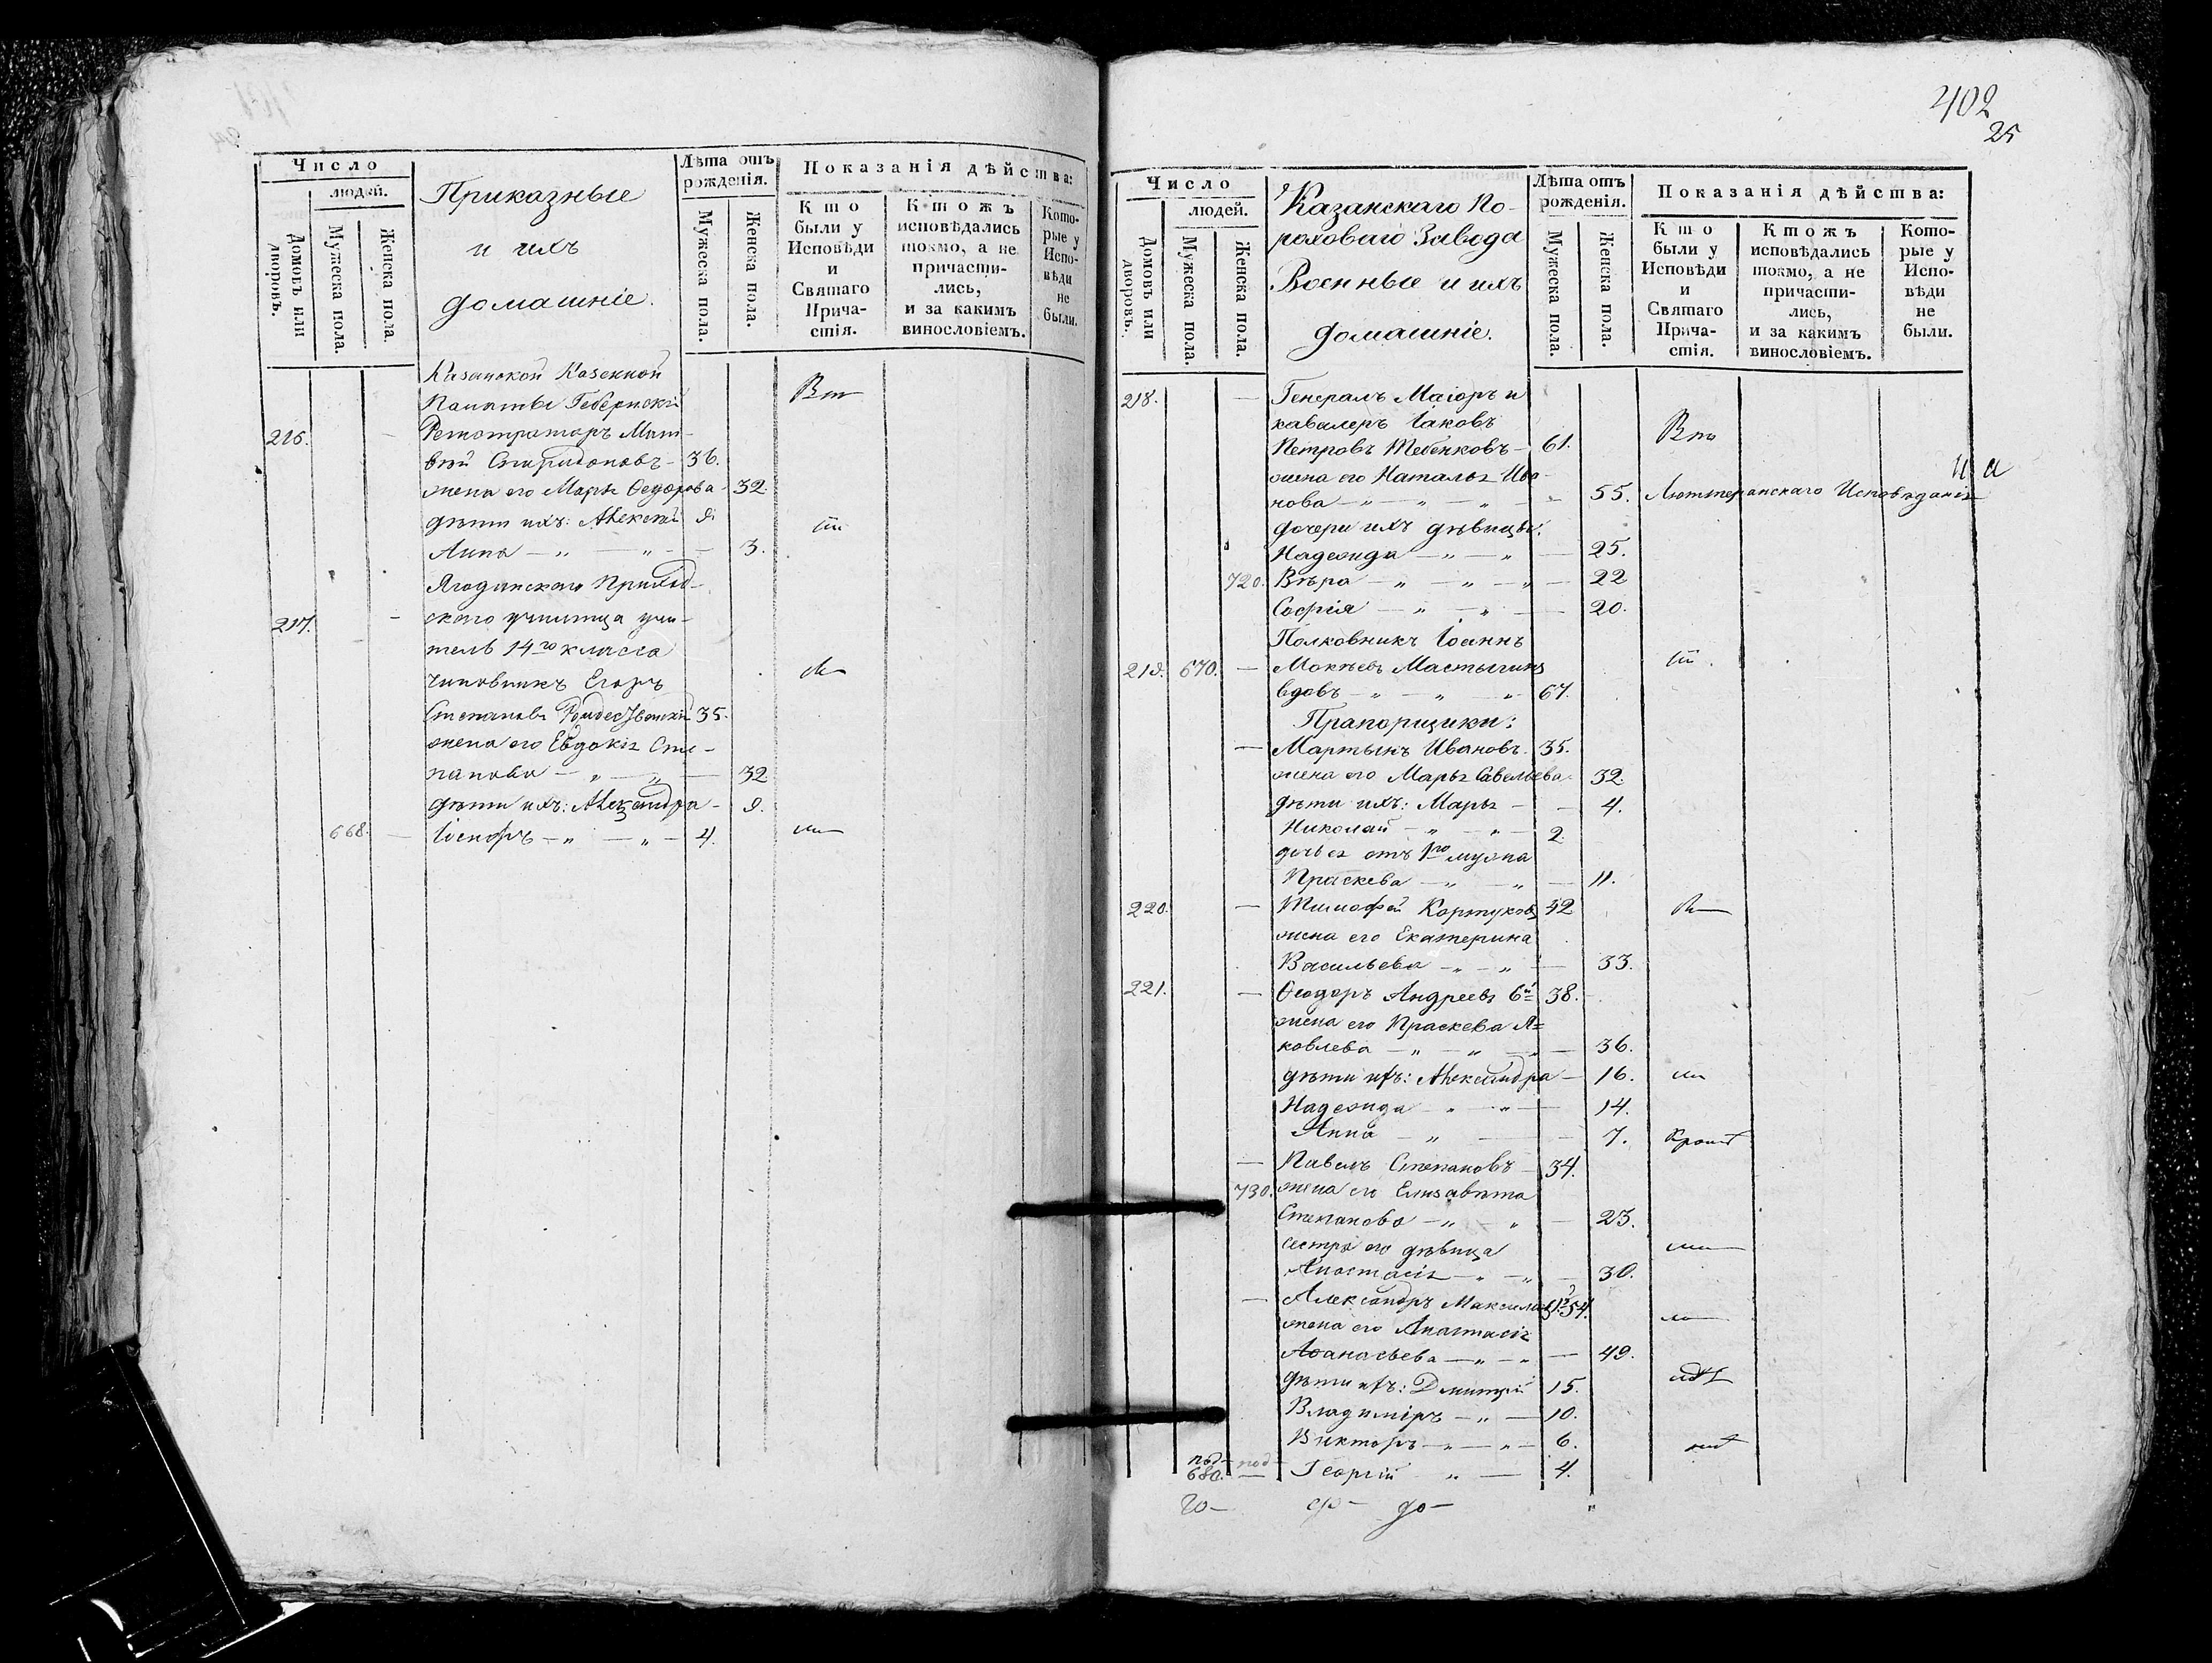 Число
людей.
Домовъ или дворовъ.
Мужеска пола.
Женска пола.
Приказные
и ихъ
домашніе.
Лѣта отъ рожденія.
Мужеска пола.
Женска пола.
Показанія дѣйства:
Кто были у Исповѣди и Святаго Причастія.
Ктожъ исповѣдались токмо, а не причастились, и за какимъ винословіемъ.
Которые у Исповѣди не были.
Казанской Казенной
Палаты Губернскій
216. Регистраторъ Мат-
вѣй Спиридоновъ - 36.
жена его Марья Ѳедорова - 32.
дѣти ихъ: Алексѣй 9
Анна — „ — „ — 3.
Ягодинскаго Приход-
217. скаго училища учи-
тель 14го класса
чиновникъ Егоръ
Степановъ Рождественскій 35.
жена его Евдокія Сте-
панова — „ — „ — 32
дѣти ихъ: Александра - 9.
668. — „ — „ — 4.
402
25
Число
людей.
Домовъ или дворовъ.
Мужеска пола.
Женска пола.
Казанскаго По-
роховаго Завода
Военные и ихъ
домашніе.
Лѣта отъ рожденія.
Мужеска пола.
Женска пола.
Показанія дѣйства:
Кто были у Исповѣди и Святаго Причастія.
Ктожъ исповѣдались токмо, а не причастились, и за какимъ винословіемъ.
Которые у Исповѣди не были.
218. — Генералъ Маіоръ и
кавалеръ Іаковъ
Петровъ Тебенковъ — 61.
жена его Наталья Ива-
нова — „ — „ — 55. Люттеранскаго Исповѣданія
дочери ихъ дѣвицы:
Надежда — „ — „ — 25.
720. Вѣра — „ — „ — „ — 22
Софія — „ — „ — 20.
Полковникъ Іоаннъ
219. 670. — Мокѣевъ Мастыгинъ
вдовъ — „ — „ — „ 67.
Прапорщики:
— Мартынъ Ивановъ. 35.
жена его Марья Савельева 32.
дѣти ихъ: Марья — — 4.
Николай — „ — „ — 2.
дочь ея отъ 1го мужа
Праскева — „ — „ — 11.
220. — Тимофей 42
жена его Екатерина
Васильева — „ — „ — 33.
221. — Ѳеодоръ Андреевъ 6й 38.
жена его Праскева Я=
ковлева — „ — „ — „ — 36.
дѣти ихъ: Александра — 16.
Надежда — „ — „ — 14.
Анна — „ — — 7.
— Павелъ Степановъ — 34.
730. жена его Елисавета
Степанова — „ — „ — 23.
сестра его дѣвица
Анастасія — „ — „ — 30.
— Александръ 54.
жена его Анастасія
Аѳанасьева — „ — „ — 49.
дѣти ихъ: Димитрій 15.
Владиміръ — „ — 10.
Викторъ — „ — „ — 6.
680. — Георгій „ — 4.